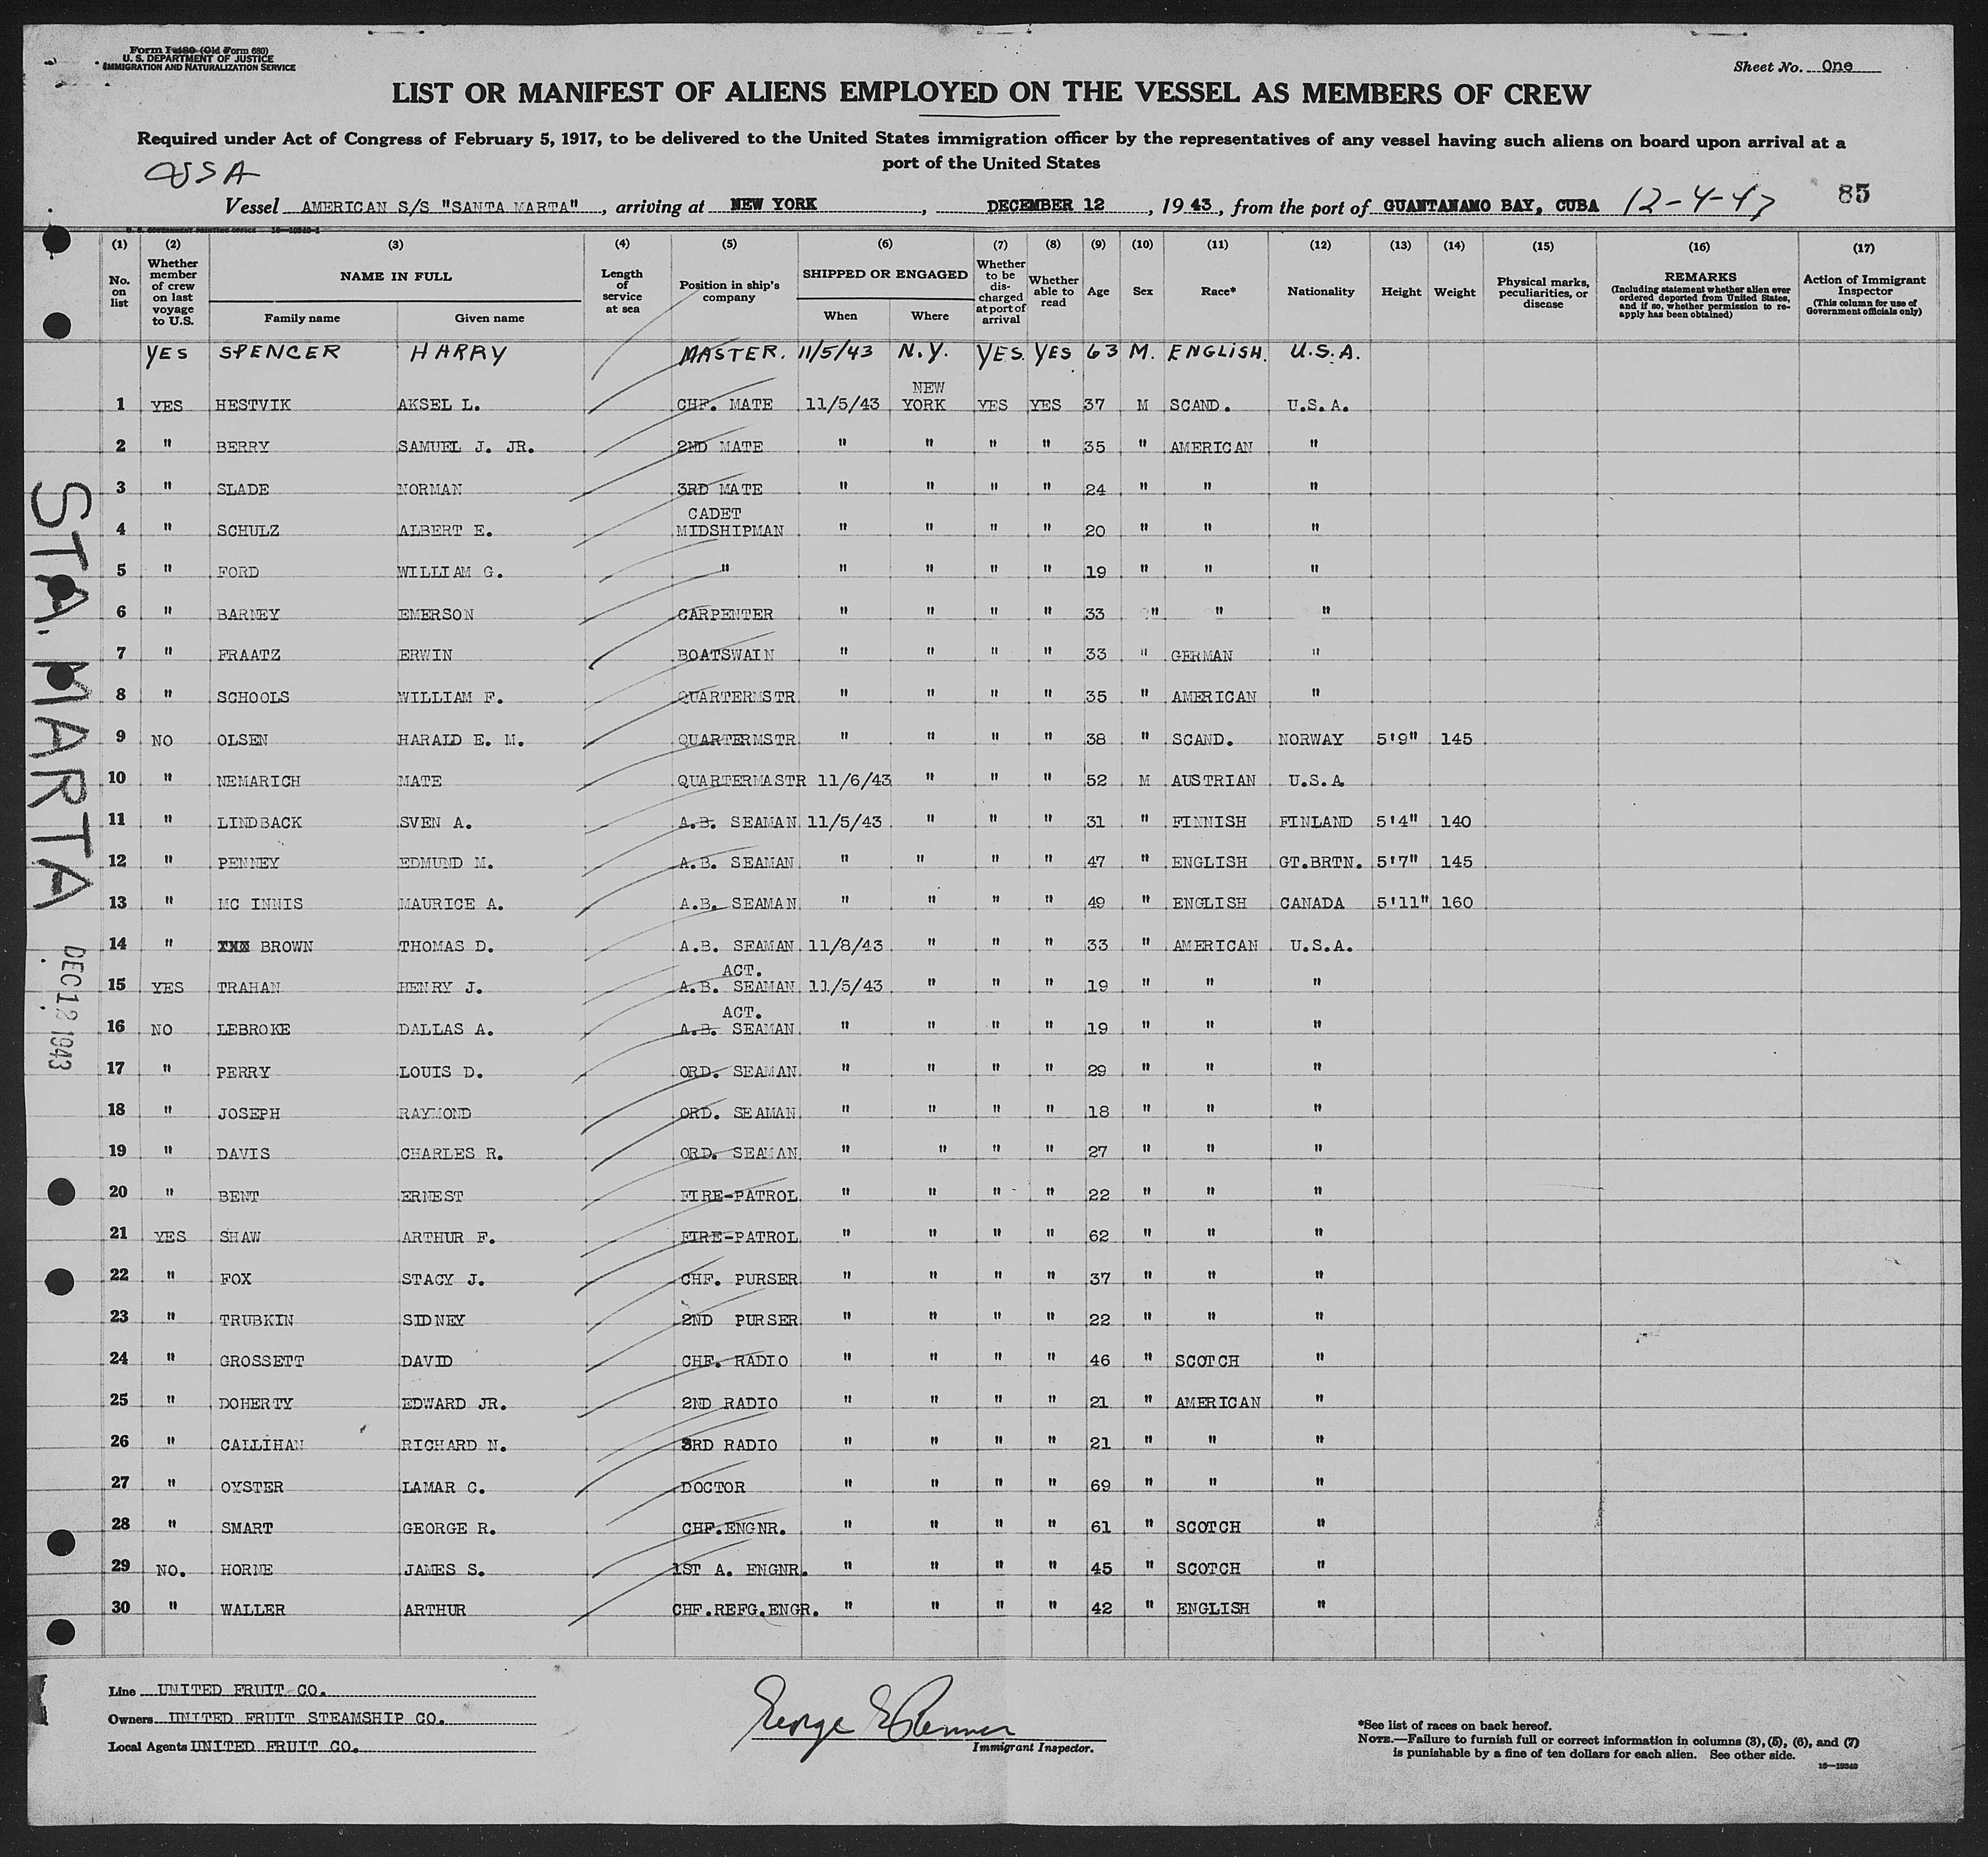 Form I-480 (Old Form 680)
U. S. DEPARTMENT OF JUSTICE
IMMIGRATION AND NATURALIZATION SERVICE
Sheet No. One
LIST OR MANIFEST OF ALIENS EMPLOYED ON THE VESSEL AS MEMBERS OF CREW
Required under Act of Congress of February 5, 1917, to be delivered to the United States immigration officer by the representatives of any vessel having such aliens on board upon arrival at a
port of the United States
USA
85
Vessel AMERICAN S/S "SANTA MARTA", arriving at NEW YORK, DECEMBER 12, 1943, from the port of GUANTANAMO BAY, CUBA 12-4-43
(1) (2) (3) (4) (5) (6) (7) (8) (9) (10) (11) (12) (13) (14) (15) (16) (17)
No. on list
Whether member of crew on last voyage to U.S.
NAME IN FULL
Family name Given name
Length of service at sea
Position in ship's company
SHIPPED OR ENGAGED
When Where
Whether to be discharged at port of arrival
Whether able to read
Age
Sex
Race*
Nationality
Height
Weight
Physical marks, peculiarities, or disease
REMARKS
(Including statement whether alien ever ordered deported from United States, and if so, whether permission to reapply has been obtained)
Action of Immigrant Inspector
(This column for use of Government officials only)
YES SPENCER HARRY MASTER. 11/5/43 N.Y. YES YES 63 M. ENGLISH. U.S.A.
1 YES HESTVIK AKSEL L. CHF. MATE 11/5/43 NEW YORK YES YES 37 M SCAND. U.S.A.
2 " BERRY SAMUEL J. JR. 2ND MATE " " " " 35 " AMERICAN "
3 " SLADE NORMAN 3RD MATE " " " " 24 " " "
4 " SCHULZ ALBERT E. CADET MIDSHIPMAN " " " " 20 " " "
5 " FORD WILLIAM G. " " " " " 19 " " "
6 " BARNEY EMERSON CARPENTER " " " " 33 " " "
7 " FRAATZ ERWIN BOATSWAIN " " " " 33 " GERMAN "
8 " SCHOOLS WILLIAM F. QUARTERMSTR " " " " 35 " AMERICAN "
9 NO OLSEN HARALD E. M. QUARTERMSTR " " " " 38 " SCAND. NORWAY 5'9" 145
10 " NEMARICH MATE QUARTERMASTR 11/6/43 " " " 52 M AUSTRIAN U.S.A
11 " LINDBACK SVEN A. A.B. SEAMAN 11/5/43 " " " 31 " FINNISH FINLAND 5'4" 140
12 " PENNEY EDMUND M. A.B. SEAMAN " " " " 47 " ENGLISH GT.BRTN. 5'7" 145
13 " MC INNIS MAURICE A. A.B. SEAMAN " " " " 49 " ENGLISH CANADA 5'11" 160
14 " BROWN THOMAS D. A.B. SEAMAN 11/8/43 " " " 33 " AMERICAN U.S.A.
15 YES TRAHAN HENRY J. ACT. A.B. SEAMAN 11/5/43 " " " 19 " " "
16 NO LEBROKE DALLAS A. ACT. A.B. SEAMAN " " " " 19 " " "
17 " PERRY LOUIS D. ORD. SEAMAN " " " " 29 " " "
18 " JOSEPH RAYMOND ORD. SEAMAN " " " " 18 " " "
19 " DAVIS CHARLES R. ORD. SEAMAN " " " " 27 " " "
20 " BENT ERNEST FIRE-PATROL " " " " 22 " " "
21 YES SHAW ARTHUR F. FIRE-PATROL " " " " 62 " " "
22 " FOX STACY J. CHF. PURSER " " " " 37 " " "
23 " TRUBKIN SIDNEY 2ND PURSER " " " " 22 " " "
24 " GROSSETT DAVID CHF. RADIO " " " " 46 " SCOTCH "
25 " DOHERTY EDWARD JR. 2ND RADIO " " " " 21 " AMERICAN "
26 " CALLIHAN RICHARD N. 3RD RADIO " " " " 21 " " "
27 " OYSTER LAMAR C. DOCTOR " " " " 69 " " "
28 " SMART GEORGE R. CHF.ENGNR. " " " " 61 " SCOTCH "
29 NO. HORNE JAMES S. 1ST A. ENGNR. " " " " 45 " SCOTCH "
30 " WALLER ARTHUR CHF.REFG.ENGR. " " " " 42 " ENGLISH "
STA. MARTA
DEC 12 1943
Line UNITED FRUIT CO.
Owners UNITED FRUIT STEAMSHIP CO.
Local Agents UNITED FRUIT CO.
George E Renner
Immigrant Inspector.
*See list of races on back hereof.
NOTE.—Failure to furnish full or correct information in columns (3), (5), (6), and (7)
is punishable by a fine of ten dollars for each alien. See other side.